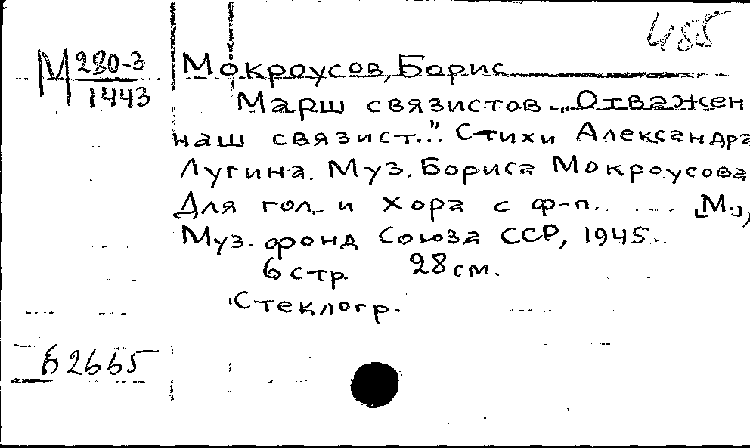 485
М 280-3
1443
Мокроусов, Борис
Марш связистов. „Отважен
наш связист..." Стихи Александра
Лугина. Муз. Бориса Мокроусова
Для гол. и хора с ф-п. .... [М.],
Муз. фонд Союза ССР, 1945.
6 стр. 28 см.
Стеклогр.
Б2665